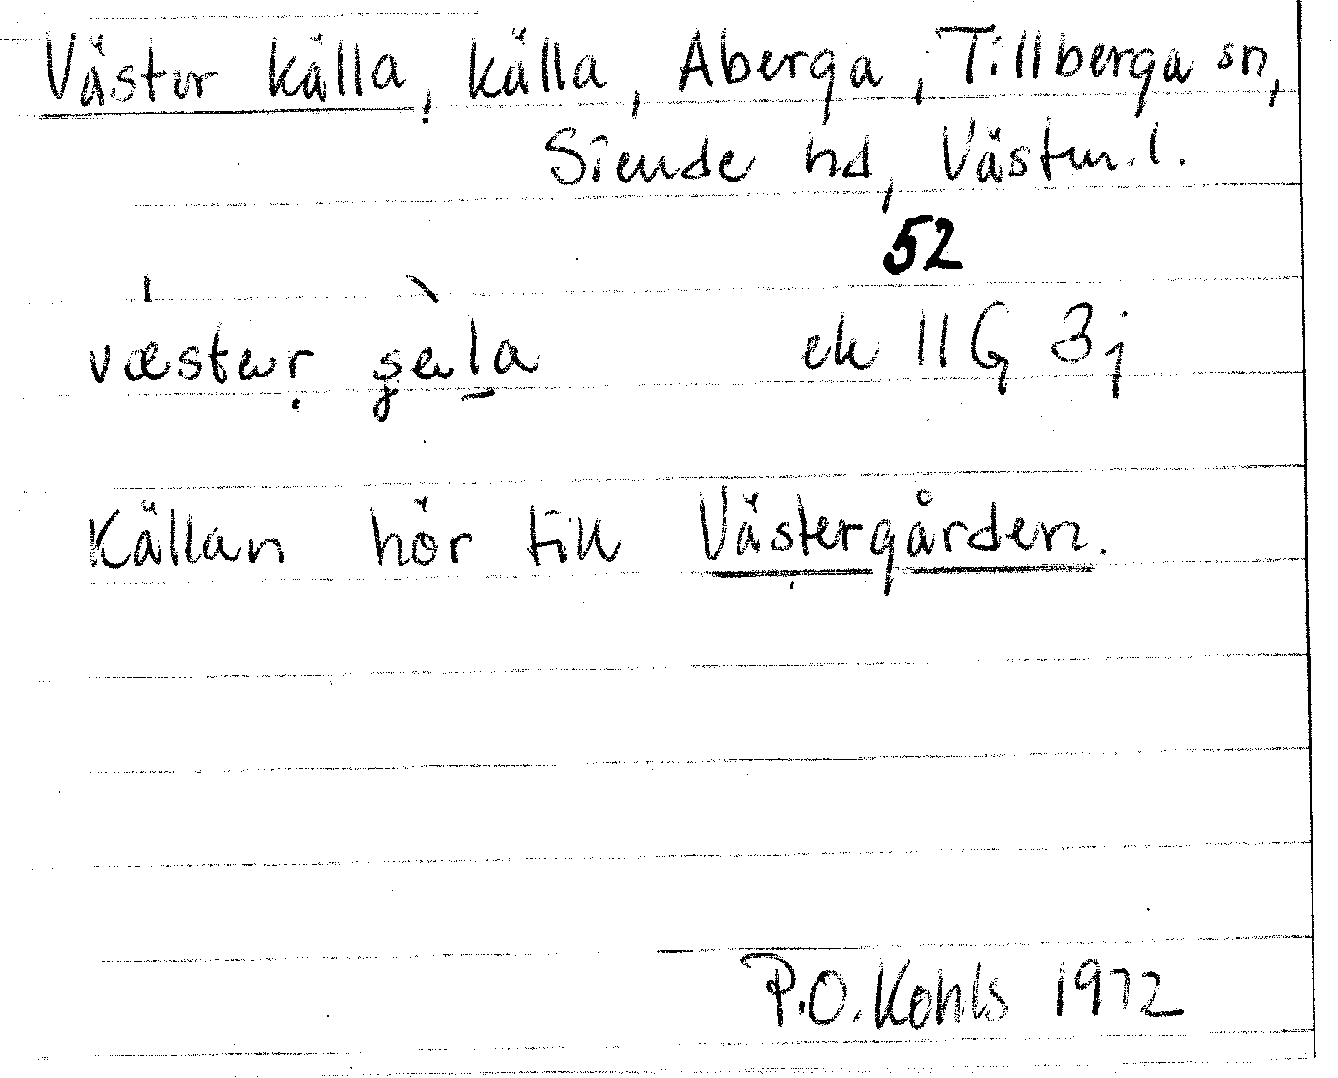 Väster källa, källa, Aberga, Tillberga sn,
Siende hd, Västm.l.
52
ek 11G 3j
Källan hör till Västergården.
P.O. Kohls 1972